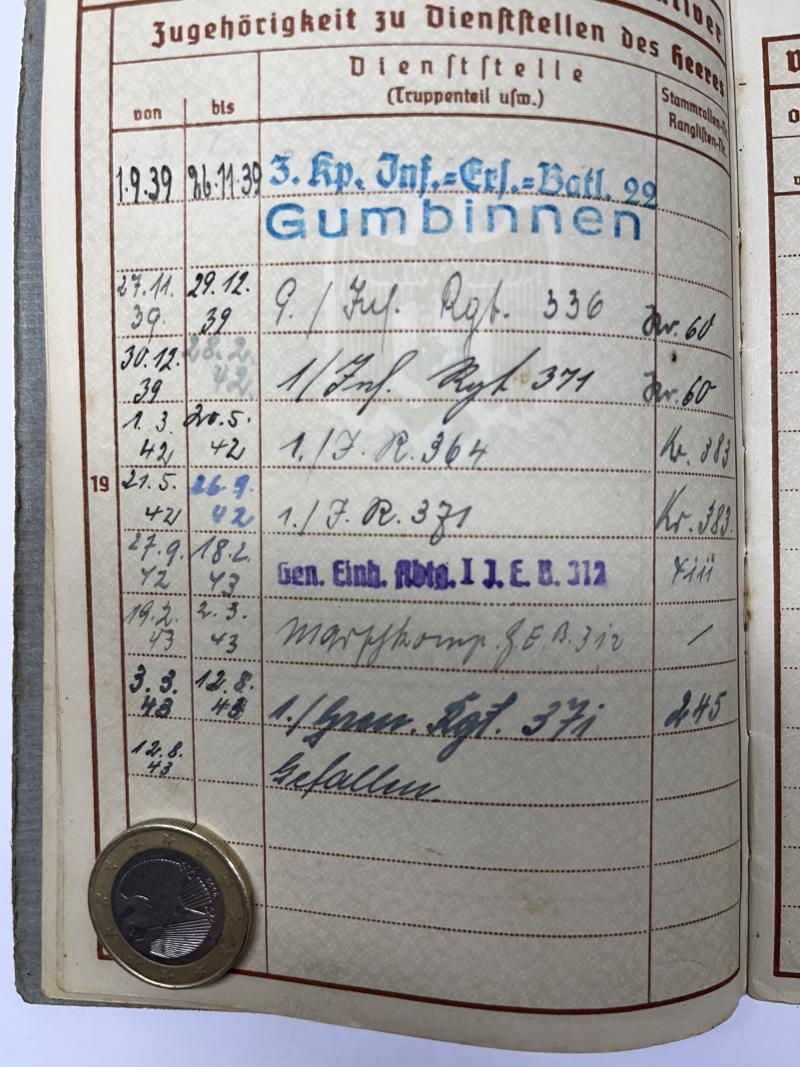 Zugehörigkeit zu Dienststellen des Heeres
von
bis
Dienststelle
(Truppenteil usw.)
Stammrollen-Nr.
Ranglisten-Nr.
1.9.39 26.11.39 3. Kp. Inf.=Ers.=Batl. 22
Gumbinnen
27.11. 39. 29.12. 39 9./Inf. Rgt. 336 Nr. 60
30.12. 39 28.2. 42 1/Inf. Rgt 371 Nr. 60
1.3. 42 20.5. 42 1./J.R. 364 Kr. 383
19
21.5. 42 26.9. 42 1./J.R. 371 Kr. 383.
27.9. 42 18.2. 43 Gen. Einh. Abtg. I J. E. B. 312
19.2. 43 2.3. 43 Marschkomp. J.E.B. 312 /
3.3. 43 12.8. 43 1./Gren. Rgt. 371 245
12.8. 43 Gefallen